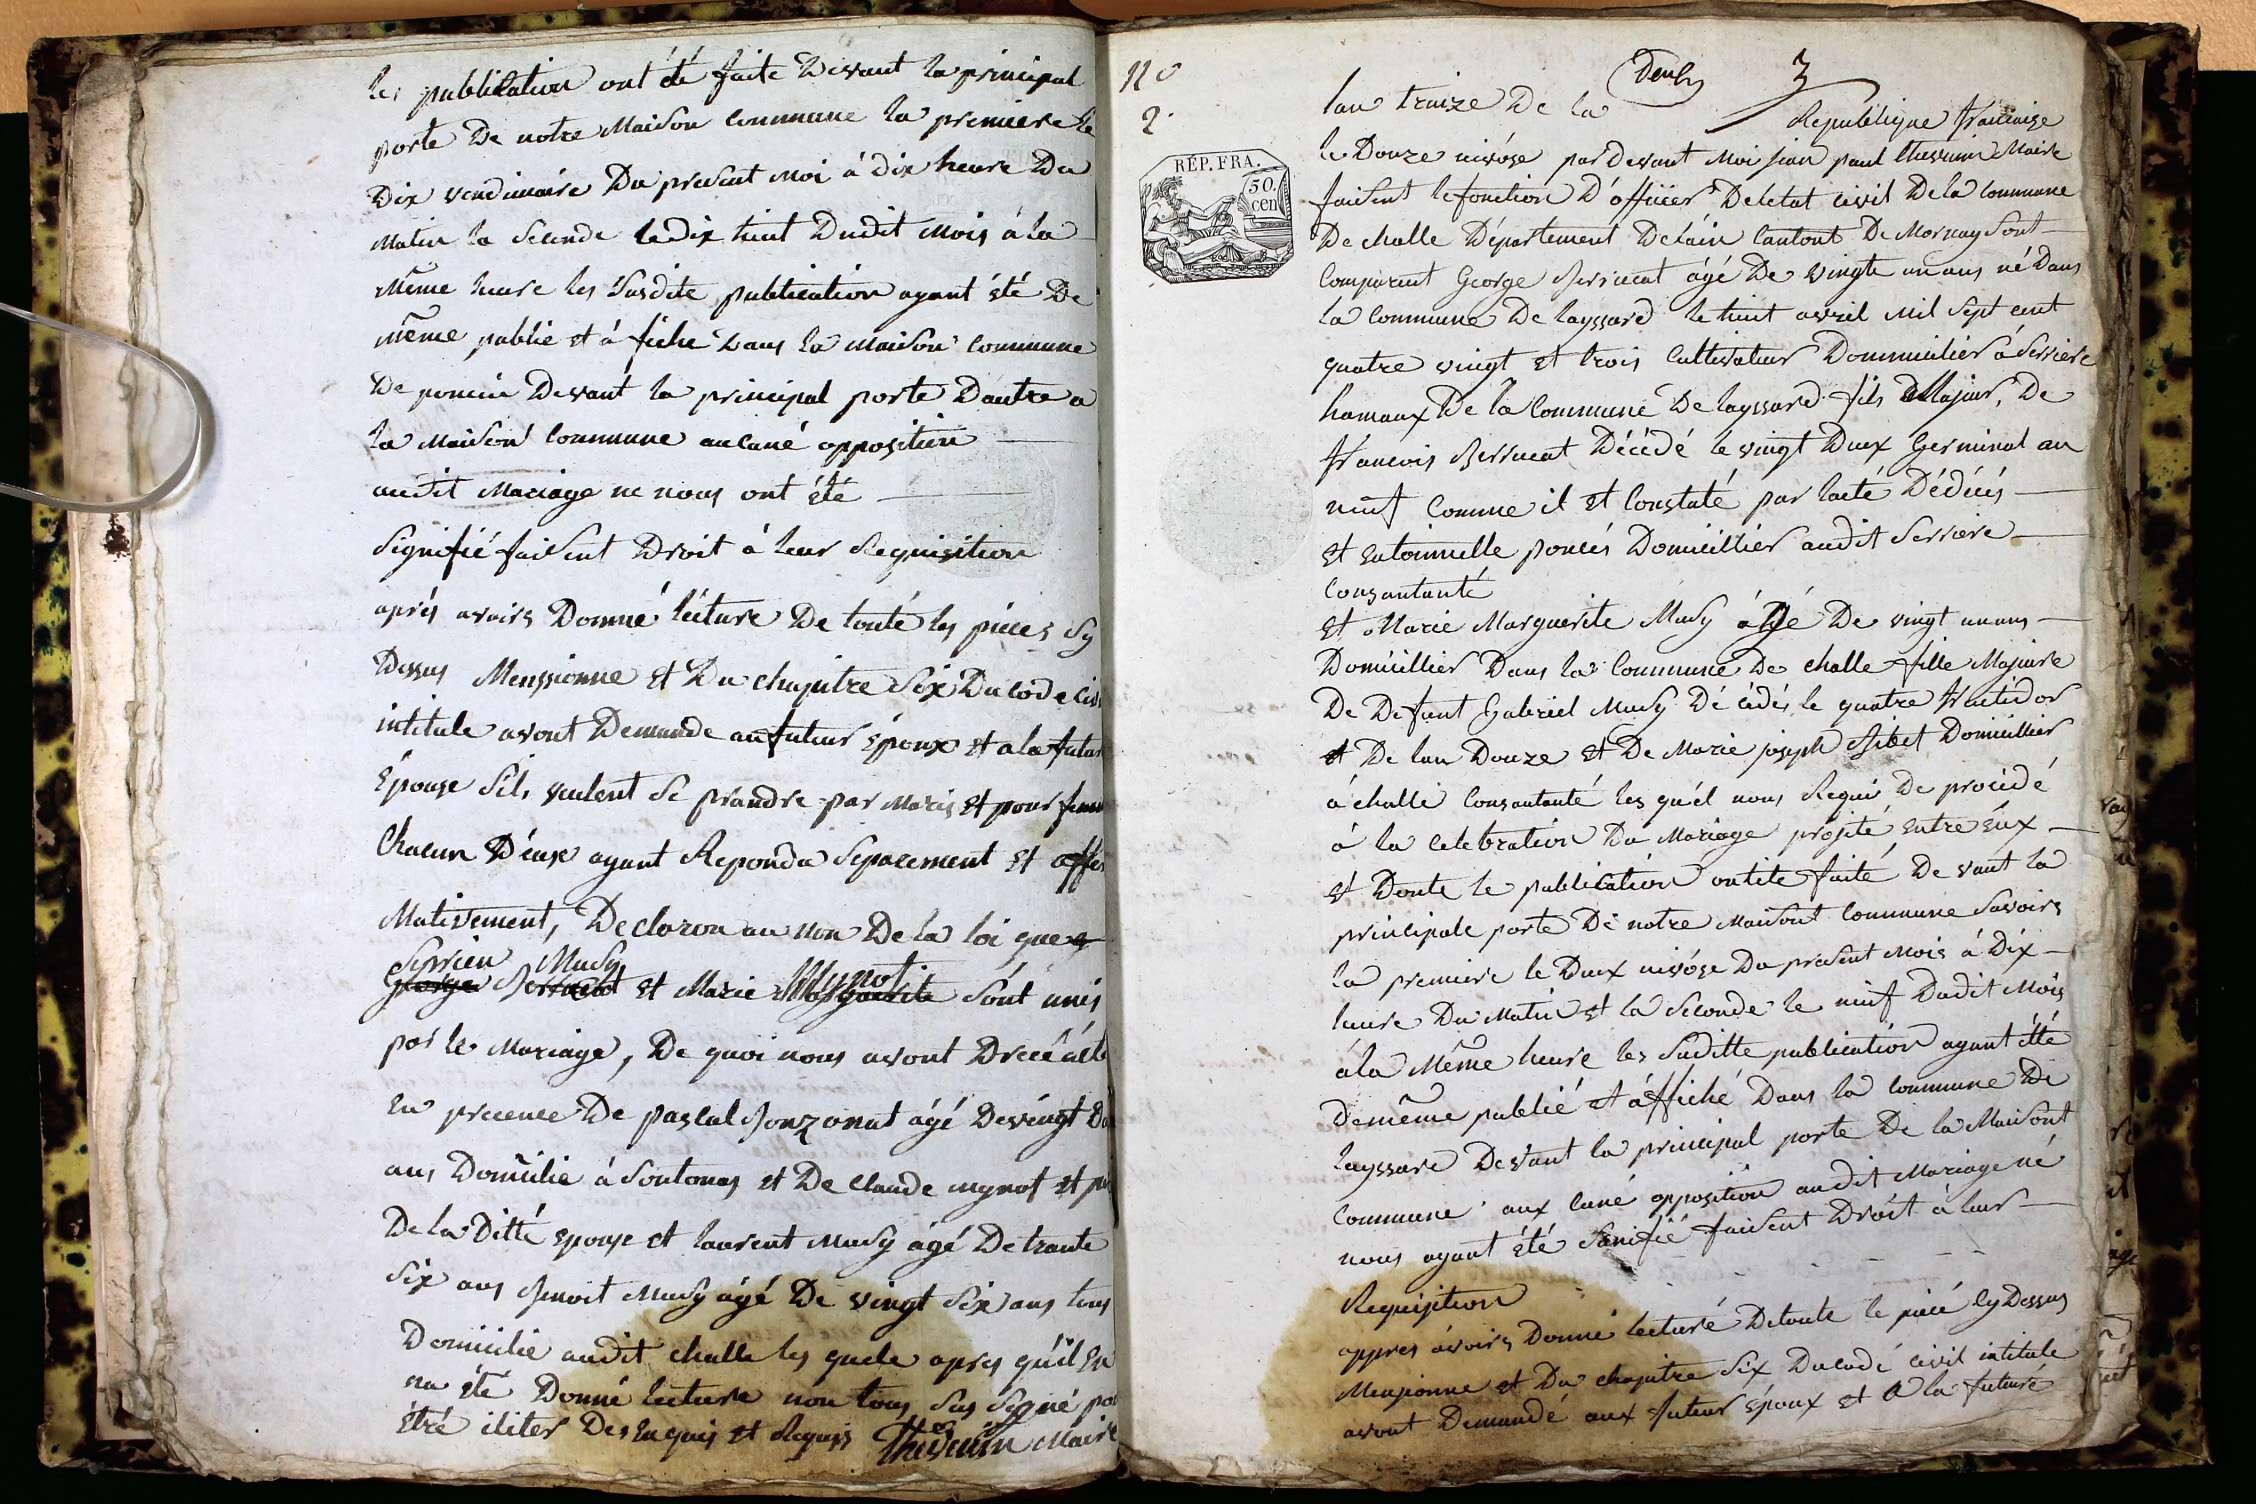 les publication ont été faite Devant la principal
porte De notre Maison Commune la premiere le
Dix vendimaire Du present Moi à dix heure Du
Matin la Seconde le dix huit Dudit Mois à la
Même heure les Susdite publication ayant été De
même publie et à fiche Dans la Maison Commune
De poncin Devant la principal porte Dautre a
la Maison Commune aucuné opposition
audit Mariage ne nous ont été
Signifié faisent Droit à leur Requisition
aprés avoirs Donné lécture De touté les piéces Sy
Dessus Menssionne et Du chapitre Six Du code Civ
intitule avont Demande au futeur Époux et a la futur
Épouse Sils veulent Se prandre par Maris et pour fem
Chacun D'éux ayant Reponda Séparement et affir
Mativement, Declaron au non De la loi que
Siprien Mudy
George Berrucat et Marie Marguerite Mynot Sont unis
par le Mariage, De quoi nous avont Drecé acte
En precence De pascal Bonzonat âgé De vingt D
ans Domicilié à Soutonas et De Claude mynot et p
De la Ditté epouse et laurent Mudy âgé De trante
Six ans Benoit Mudy âgé De vingt Six ans tous
Domicilié audit challe les quele apres qu'il En
na été Donné lecture non tous Sus Signé po
être iliter Des Enquis et Requis Thévenin Maire
N°
2.
RÉP. FRA.
50.
cen
Deux 3
lan traize De la Republique françaize
le Douze nivóse par Devant Moi jean paul thevenin Maire
faisent le fonction D'officier De letat civil De la Commune
De challe Département De láin Cantont De Mornay Sont
Comparent George Berrucat âgé De vingte un ans né Dans
la Commune De layssard le huit avril Mil Sept cent
quatre vingt et trois Cultivateur Dommicilier à Serriere
hamaux De la Commune De layssard fils Majeur, De
francois Berrucat Décédé le vingt Deux Germinal an
neuf Comme il et Constaté par lacté Décés
et Entoinnelle poncés Domicillier audit Serriere
Consantanté
Et Marie Marguerite Mudy âgé De vingt un ans
Domicillier Dans la Commune De challe fille Majeure
De Defunt Gabriel Mudy Dé cédés le quatre fructidor
et De lan Douze et De Marie joseph Bibet Domicillier
à challe Consantanté les quél nous Requi De procédé
à la celebration Du Mariage projété entre Eux
et Donte le publication ontété faité De vant la
principale porte De notre Maisont Commune Savoirs
la premiere le Deux nivóse Du present Mois à Dix
heure Du Matin et la Seconde le neuf Dudit Mois
á la Même heure les Suditte publication ayant été
Demême publié et áffiché Dans la Commune De
layssard Devant la principal porte De la Maisont
Commune aux cuné opposition audit Mariage né
nous ayant été Sinifié faisent Droit à leur
Requisition
appres avoirs Donné lecturé Detoute le piecé Cy Dessus
Menssionne et Du chapitre Six Ducodé civil intitule
avont Demandé aux futeur Époux et A la futuré